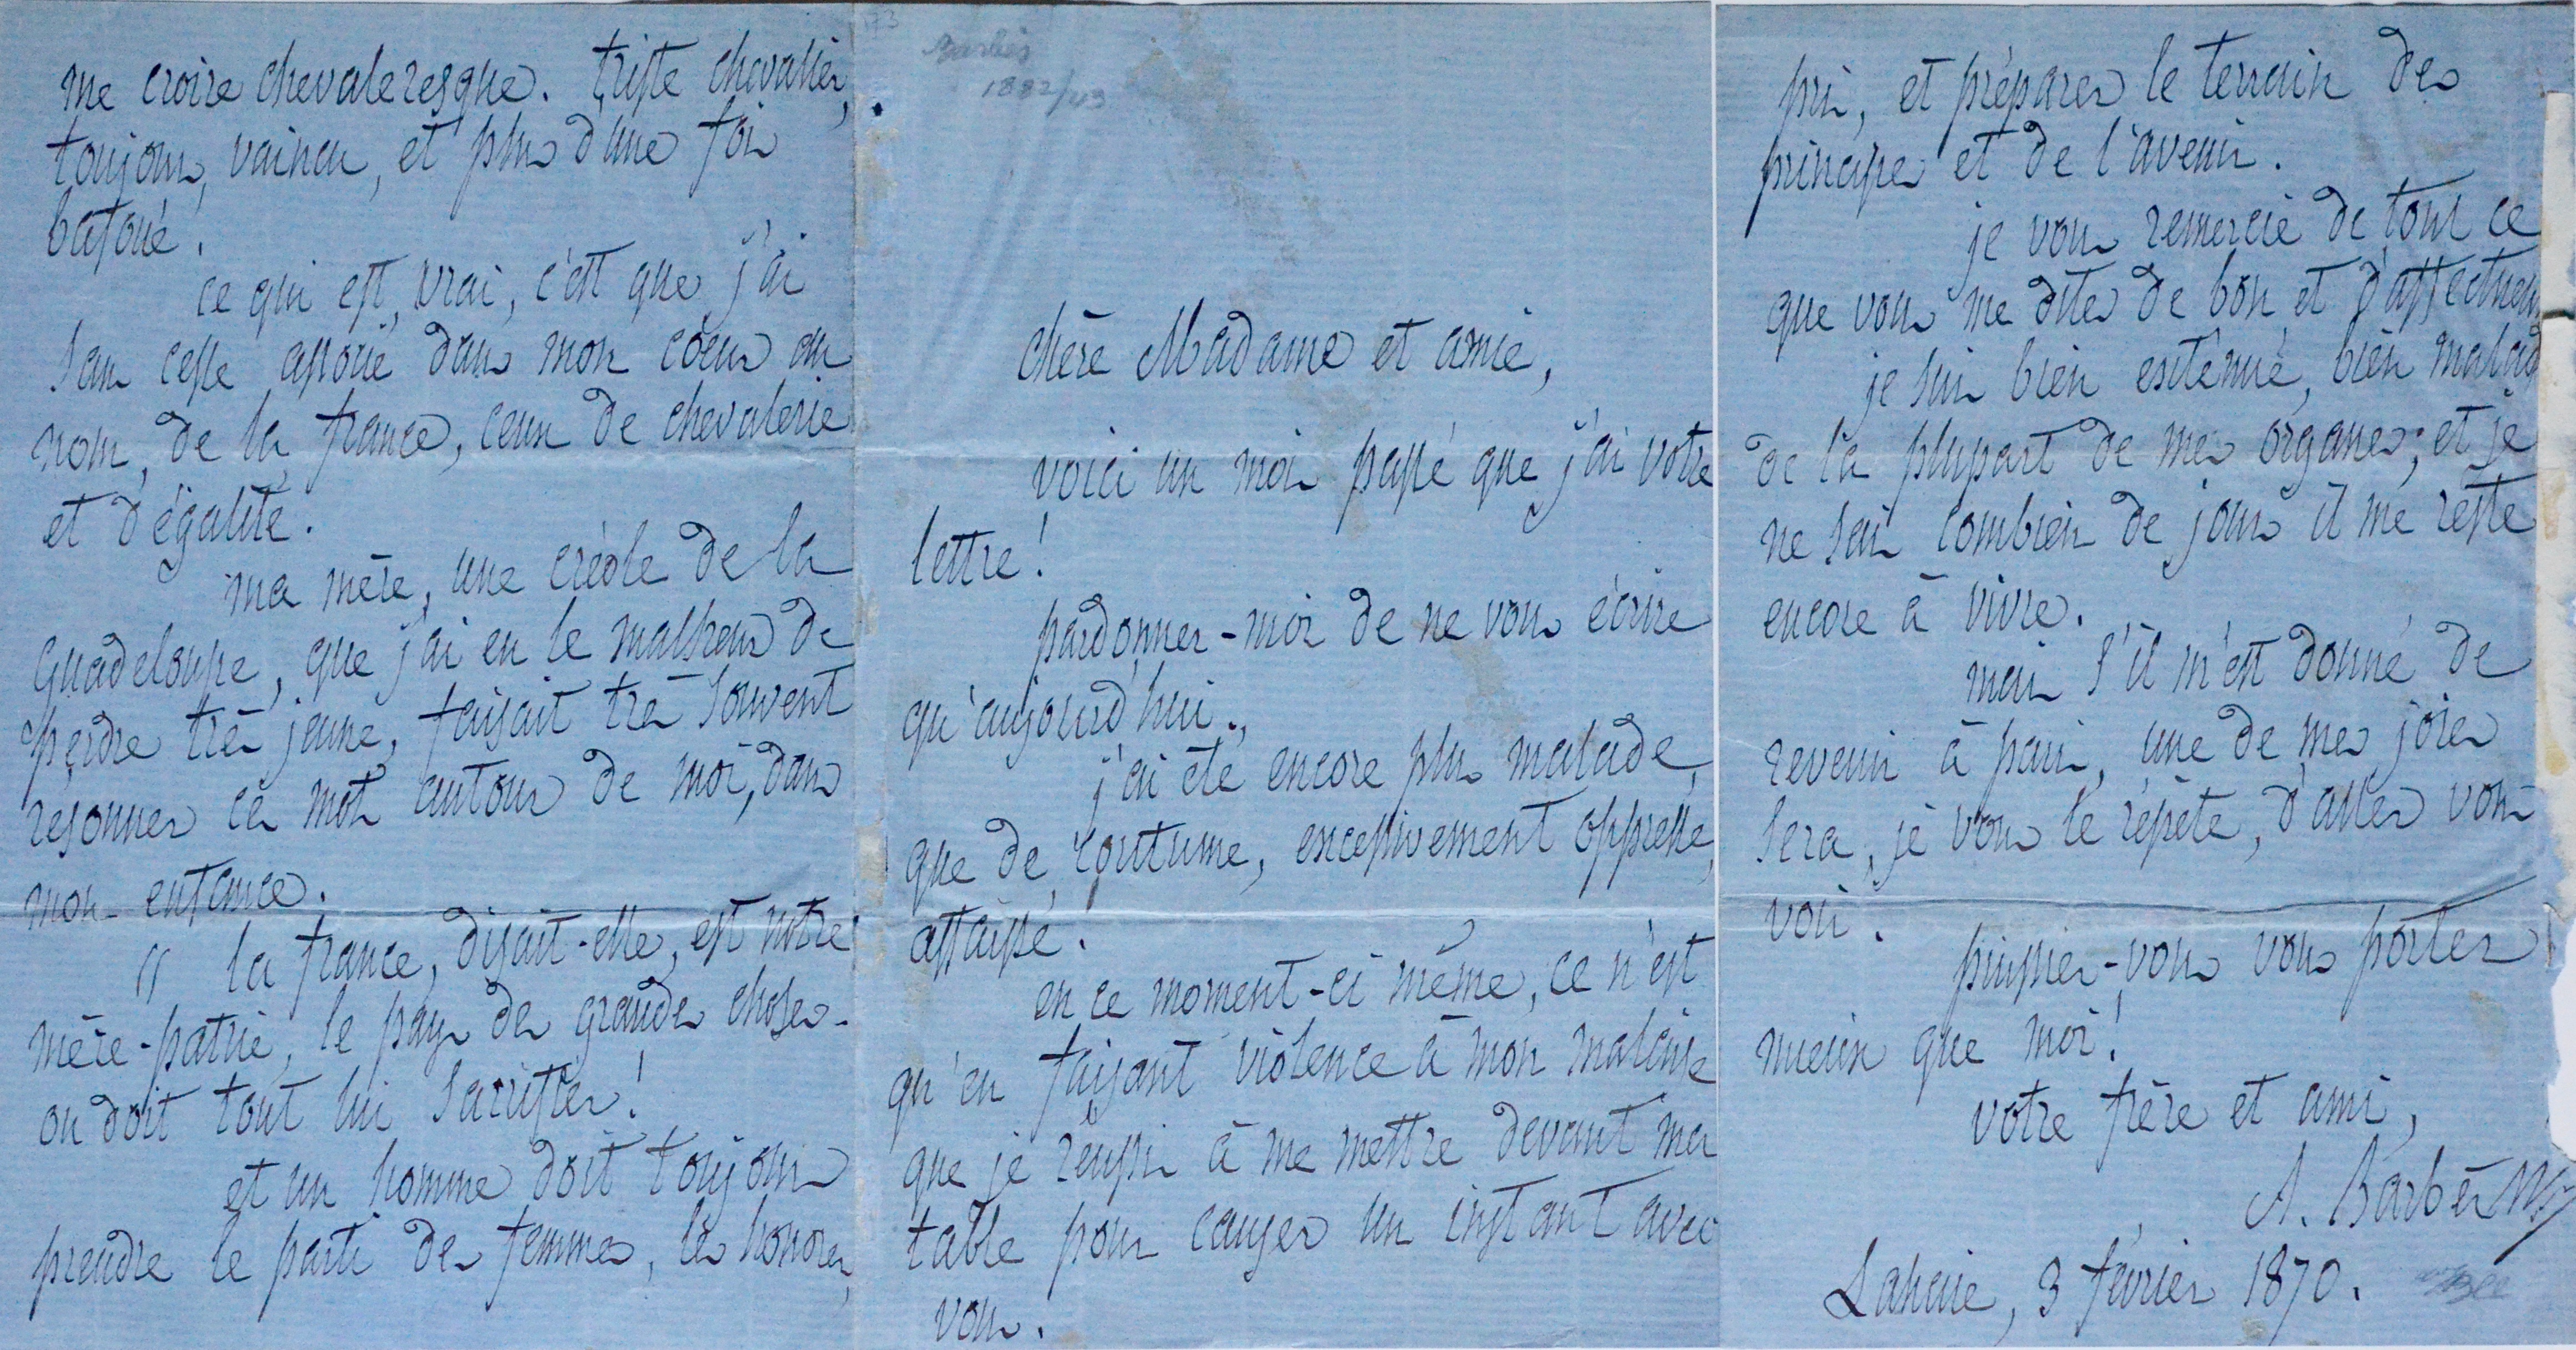 me croire chevaleresque. triste chevalier,
toujours vaincu, et plus d'une fois
bafoué.
ce qui est vrai, c'est que j'ai
sans cesse associé dans mon coeur au
nom de la france, ceux de chevalerie
et d'égalité.
ma mère, une créole de la
Guadeloupe, que j'ai eu le malheur de
perdre très jeune, faisait très souvent
résonner ces mots autour de moi, dans
mon enfance.
" la france, disait-elle, est notre
mère-patrie, le pays des grandes choses.
on doit tout lui sacrifier!
et un homme doit toujours
prendre le parti des femmes, les honorer,
73
Barbès
1882/43
chère Madame et amie,
voici un mois passé que j'ai votre
lettre!
pardonnez-moi de ne vous écrire
qu'aujourd'hui.
j'ai été encore plus malade,
que de coutume, excessivement oppressé,
affaissé.
en ce moment-ci même, ce n'est
qu'en faisant violence à mon malaise
que je réussis à me mettre devant ma
table pour causer un instant avec
vous.
et préparer le terrain des
principes et de l'avenir.
je vous remercie de tout ce
que vous me dites de bon et d'affectueux
je suis bien exténué, bien malade
de la plupart de mes organes; et je
ne sais combien de jours il me reste
encore à vivre.
mais s'il m'est donné de
revenir à paris, une de mes joies
sera, je vous le répète, d'aller vous
voir.
puissiez-vous vous porter
mieux que moi!
votre frère et ami,
A. Barbès
Lahaie, 3 février 1870.